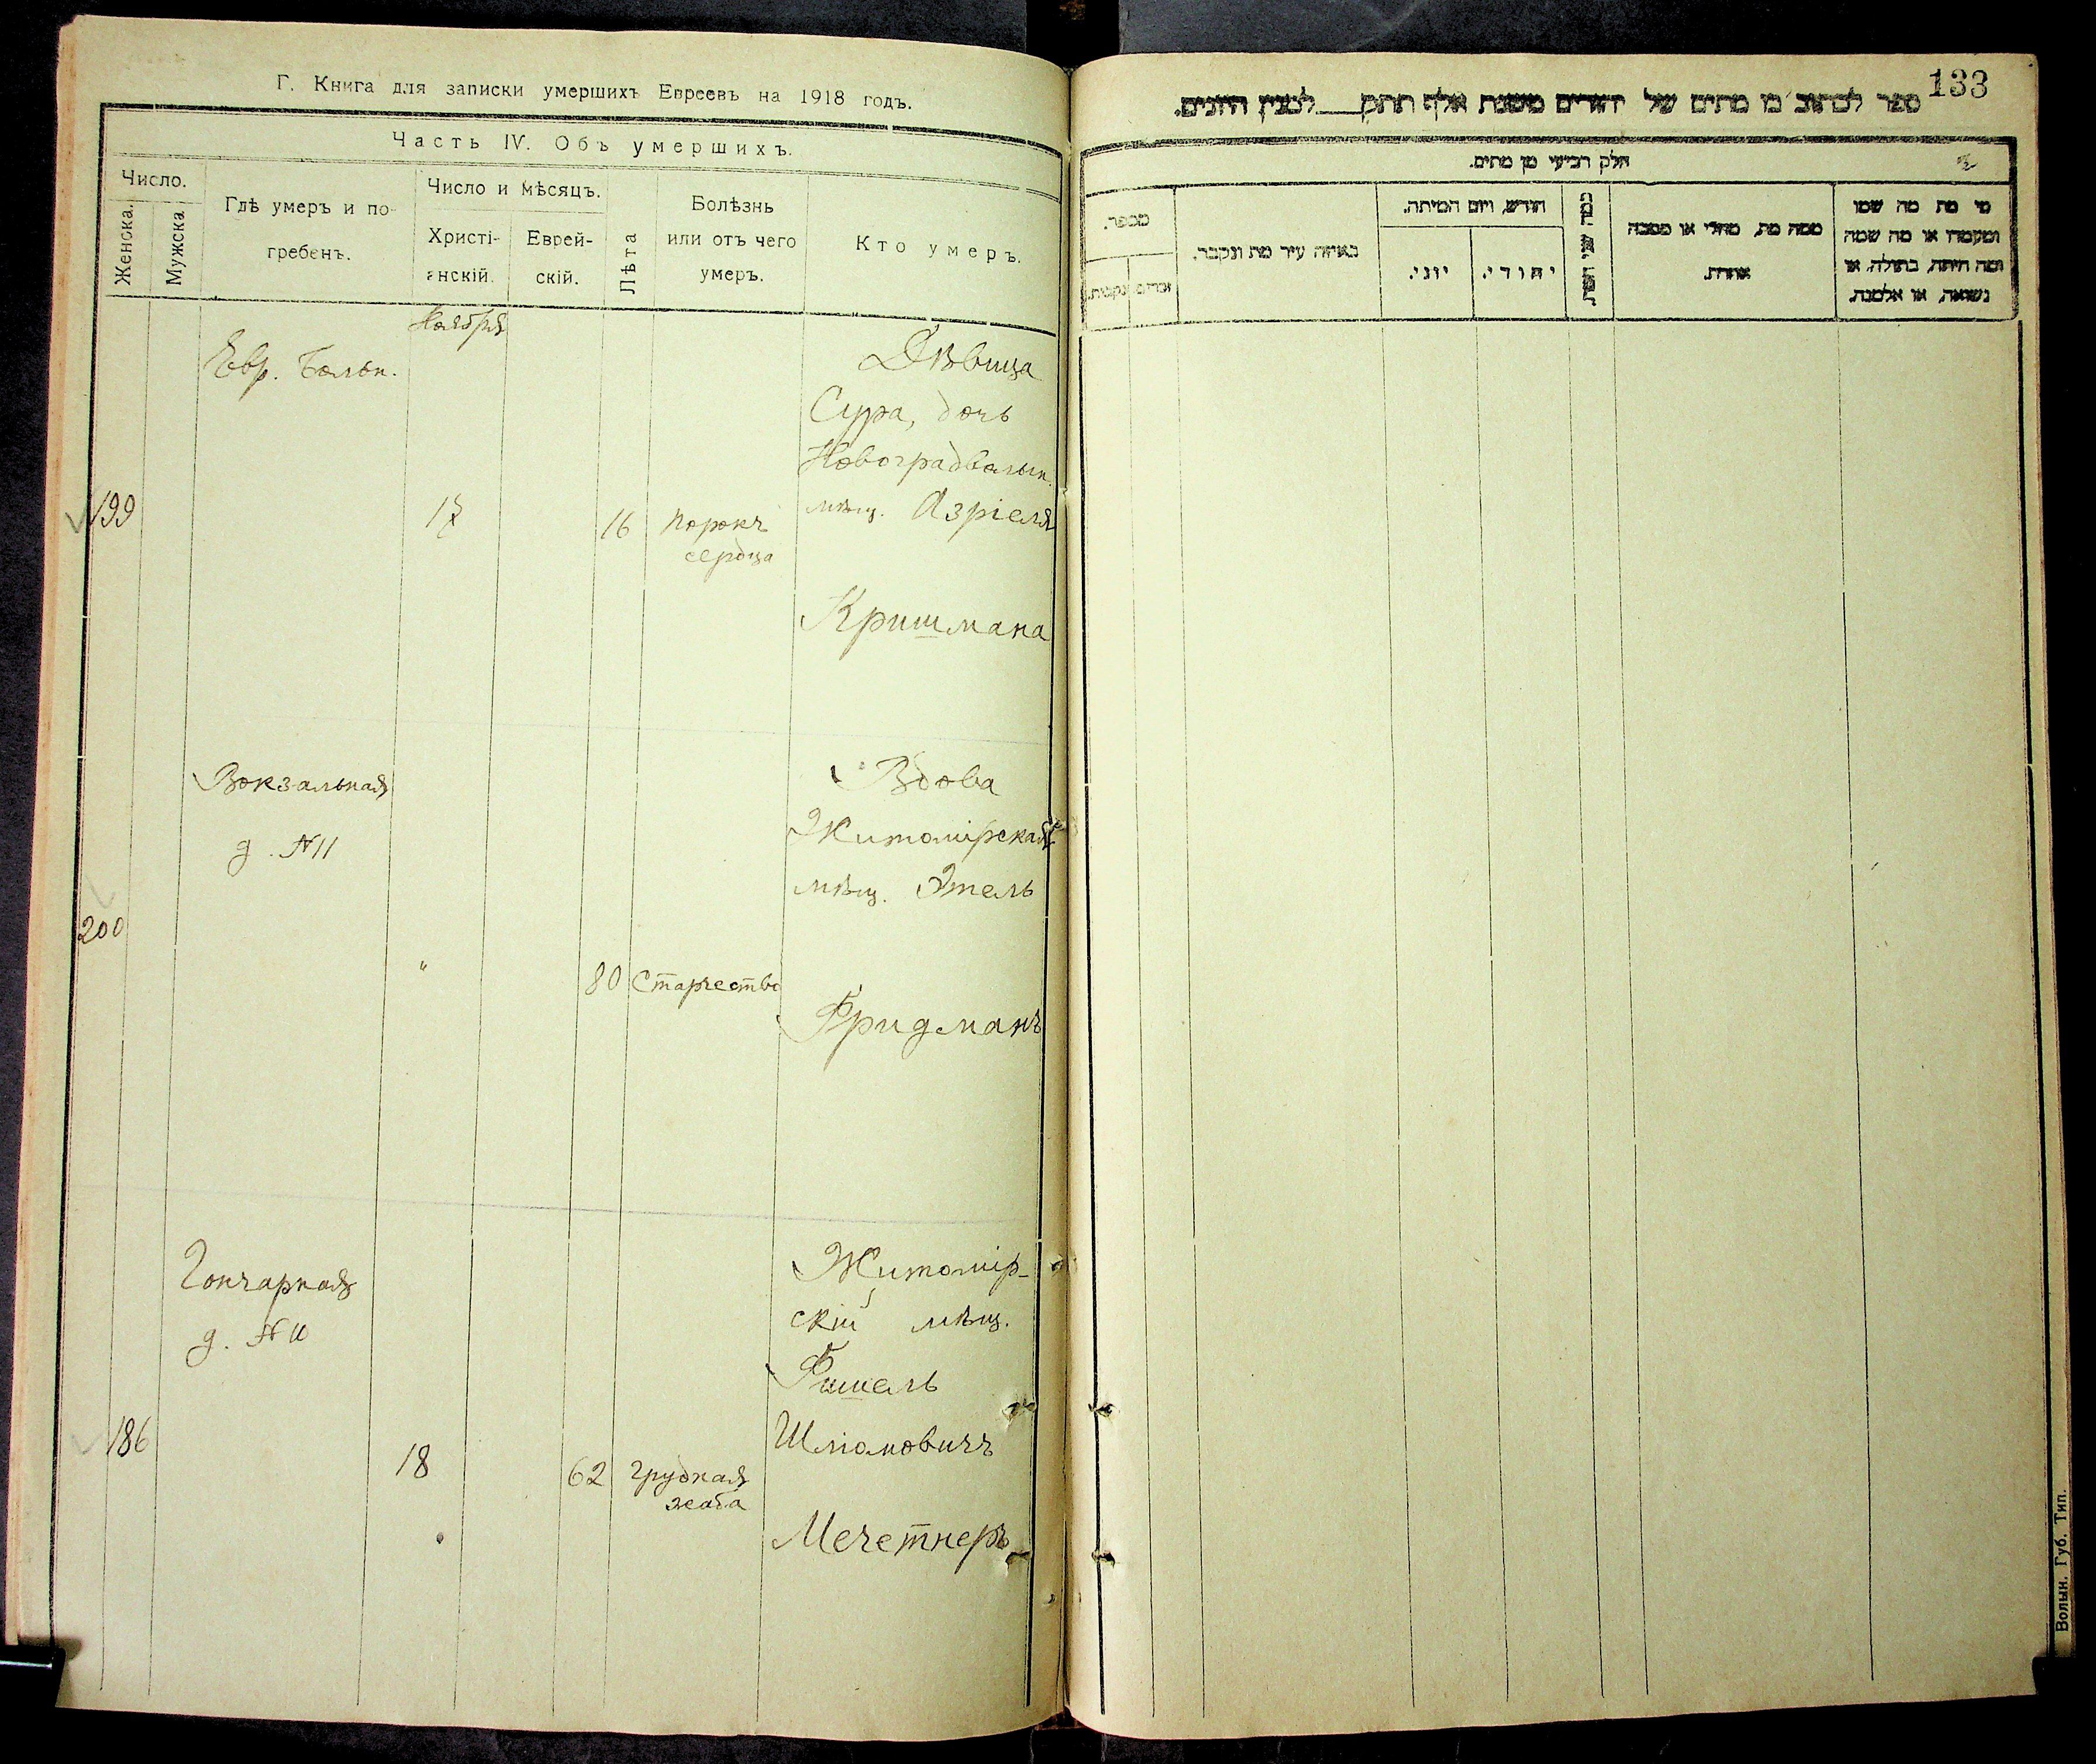 Г. Книга для записки умершихъ Евреевъ на 1918 годъ.
Часть IV. Объ умершихъ.
Число.
Женска.
Мужска
Гдѣ умеръ и по-
гребенъ.
Число и мѣсяцъ.
Христі-
анскій.
Еврей-
скій.
Лѣта
Болѣзнь
или отъ чего
умеръ.
Кто умеръ.
Ноября
199
Евр. Больн.
17
16
Порокъ
сердца
Дѣвица
Сура, дочь
Новоградволын.
мѣщ. Азріеля
Кришмана
200
Вокзальная
д. №11
"
80
Старчество
Вдова
Житомірская
мѣщ. Этель
Фридманъ
186
Гончарная
д. №
18
62
грудная
жаба
Житомір-
скій мѣщ.
Фишель
Шліомовичъ
Мечетнеръ
133
ספר לכתוב בו מתים של יהודים משנת אלף תתק למנין היונים.
חלק רביעי מן מתים.
מספר.
נקבות.
זכרים
באיזה עיר מת ונקבר.
חודש, ויום המיתה.
יוני.
יהודי.
כמה שני המת
ממה מת, מחלי או מסבה
אחרת.
מי מת מה שמו
ומעמדו או מה שמה
ומה היתה, בתולה, או
נשואה, או אלמנה.
Волын. Губ. Тип.